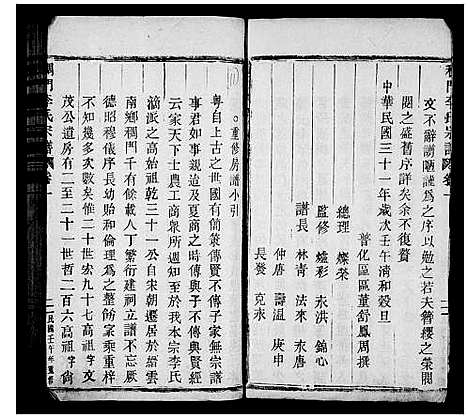 文不辭譾陋謹為之序以勉之若夫簪纓之榮閥
閱之盛舊序詳矣余不復贅
中華民國三十一年歲次壬午清和穀旦
普化區區董舒鳳周撰
總理 燦榮
監修 爐彩 永洪 錦心
譜長 林青 法來 永唐
仲唐 壽溫 庚申
吳發 克永
重修房譜小引
粵自上古之世國有史而家無譜國有史則天子
事君如事親迨及夏商之時傳與子不傳與賢經
云家天下士農工商眾所週知至於我本宗李氏
滴派之始祖乾三十一公自宋朝遷居於縉雲
南鄉稠門千有餘載人丁繁衍建祠立譜不忘宗
德昭穆儀序長幼貽和倫理為之整飭乘重梓
不知支數矣惟二十二世宏九十七高祖字文
茂公遺房有二至二十一世哲二百六高祖字尚
稠門李氏宗譜 卷一
稠門李氏宗譜 卷一
民國壬午年重修